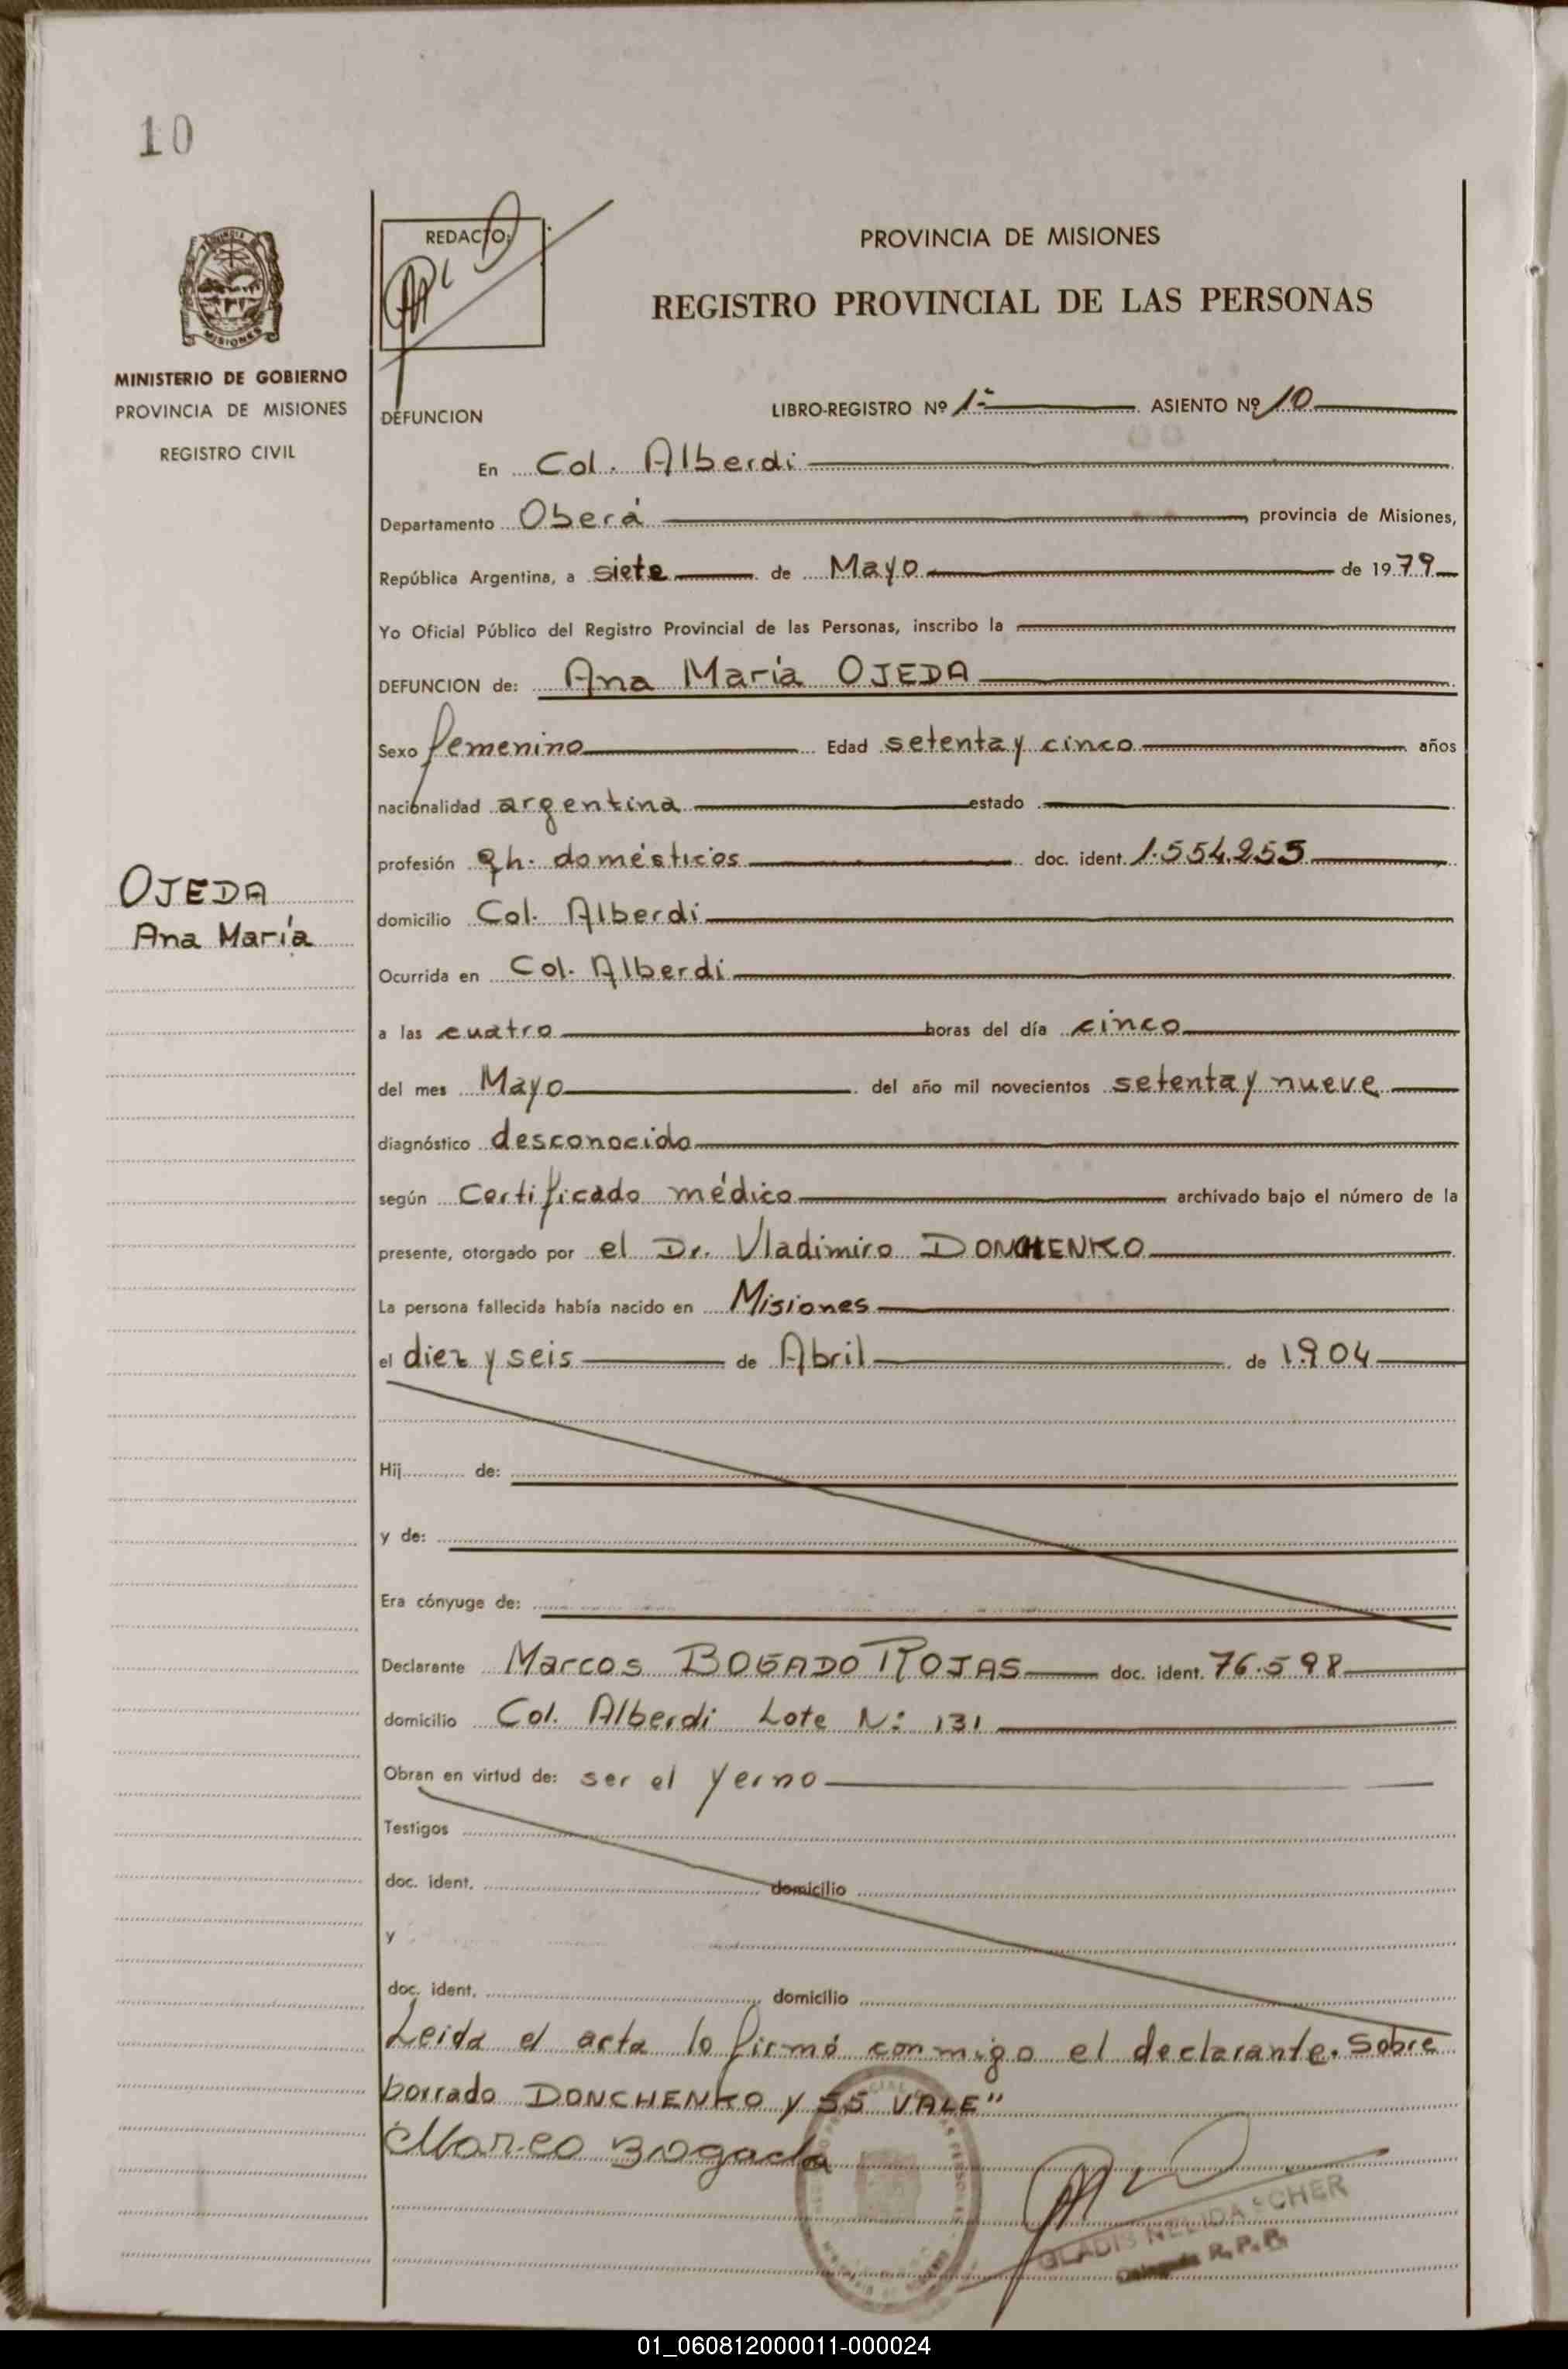 10
PROVINCIA DE MISIONES
REGISTRO PROVINCIAL DE LAS PERSONAS
REDACTO:
MISIONES
MINISTERIO DE GOBIERNO
PROVINCIA DE MISIONES
REGISTRO CIVIL
DEFUNCION
LIBRO-REGISTRO Nº 1º ASIENTO Nº 10
En Col. Alberdi
Departamento Oberá provincia de Misiones,
República Argentina, a siete de Mayo de 1979
Yo Oficial Público del Registro Provincial de las Personas, inscribo la
DEFUNCION de: Ana María OJEDA
Sexo femenino Edad setenta y cinco años
nacionalidad argentina estado
profesión qh. domésticos doc. ident. 1.554.255
OJEDA
Ana María
domicilio Col. Alberdi
Ocurrida en Col. Alberdi
a las cuatro horas del día cinco
del mes Mayo del año mil novecientos setenta y nueve
diagnóstico desconocido
según Certificado médico archivado bajo el número de la
presente, otorgado por el Dr. Vladimiro DONCHENKO
La persona fallecida había nacido en Misiones
el diez y seis de Abril de 1904
Hij de:
y de:
Era cónyuge de:
Declarante Marcos BOGADO ROJAS doc. ident. 76.598
domicilio Col. Alberdi Lote Nº 131
Obran en virtud de: ser el yerno
Testigos
doc. ident. domicilio
y
doc. ident. domicilio
Leida el acta lo firmó conmigo el declarante. Sobre
borrado DONCHENKO y 55 VALE"
Marco Bogado
GLADIS NELIDA SCHER
R.P.P.
01_060812000011-000024